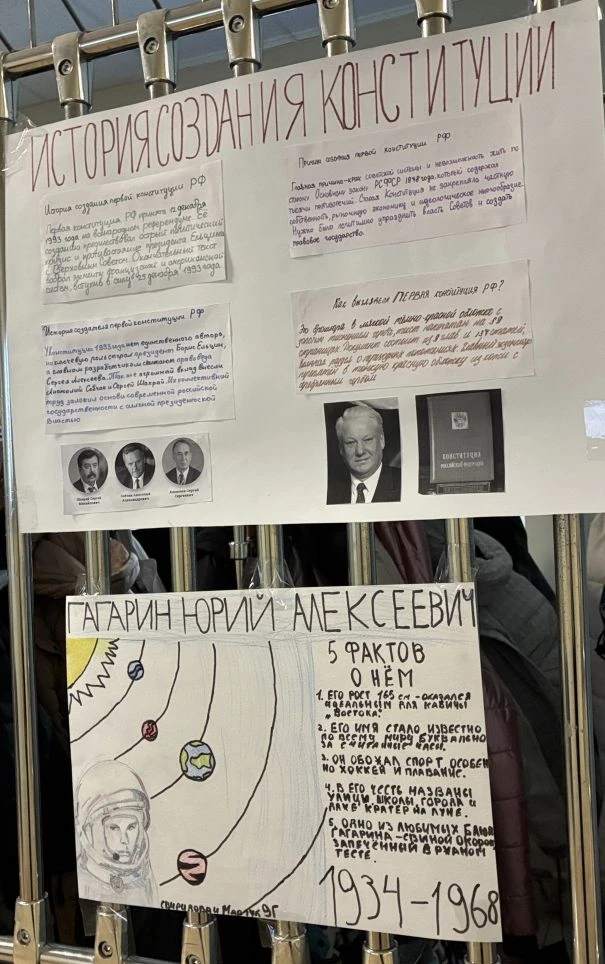 ИСТОРИЯ СОЗДАНИЯ КОНСТИТУЦИИ
История создания первой конституции РФ
Первая конституция РФ принята 12 декабря
1993 года на всенародном референдуме. Её
созданию предшествовал острый политический
кризис и противостояние президента Ельцина
с Верховным Советом. Окончательный текст
вобрал элементы французской и американской
систем, вступив в силу 25 декабря 1993 года
Причина создания первой конституции РФ
Главная причина-крах советской системы и невозможность жить по
старому Основному закону РСФСР 1978 года, который содержал
тысячи противоречий. Старая Конституция не закрепляла частную
собственность, рыночную экономику и идеологическое многообразие.
Нужно было легитимно упразднить власть Советов и создать
правовое государство.
История создателя первой конституции РФ
У конституции 1993 года нет единственного автора,
но ключевую роль сыграл президент Борис Ельцин,
а главным разработчиком считают правоведа
Сергея Алексеева. Также огромный вклад внесли
Анатолий Собчак и Сергей Шахрай. Их коллективный
труд заложил основы современной российской
государственности с сильной президентской
властью
Как выглядела ПЕРВАЯ конституция РФ?
Это брошюра в мягкой тёмно-красной обложке с
золотым тиснением герба, текст напечатан на 59
страницах. Документ состоит из 9 глав и 137 статей,
Шахрай Сергей
Михайлович
Собчак Анатолий
Александрович
Алексеев Сергей
Сергеевич
КОНСТИТУЦИЯ
РОССИЙСКОЙ ФЕДЕРАЦИИ
ГАГАРИН ЮРИЙ АЛЕКСЕЕВИЧ
5 ФАКТОВ
О НЁМ
1. ЕГО РОСТ 165 см - ОКАЗАЛСЯ
ИДЕАЛЬНЫМ ДЛЯ КАБИНЫ
„ВОСТОКА".
2. ЕГО ИМЯ СТАЛО ИЗВЕСТНО
ПО ВСЕМУ МИРУ БУКВАЛЬНО
ЗА СЧИТАННЫЕ ЧАСЫ.
3. ОН ОБОЖАЛ СПОРТ, ОСОБЕН
НО ХОККЕЙ И ПЛАВАНИЕ.
4. В ЕГО ЧЕСТЬ НАЗВАНЫ
УЛИЦЫ, ШКОЛЫ, ГОРОДА И
ДАЖЕ КРАТЕР НА ЛУНЕ.
5. ОДНО ИЗ ЛЮБИМЫХ БЛЮД
ГАГАРИНА - СВИНОЙ ОКОРОК
ЗАПЕЧЁННЫЙ В РЖАНОМ
ТЕСТЕ.
1934-1968
9Г